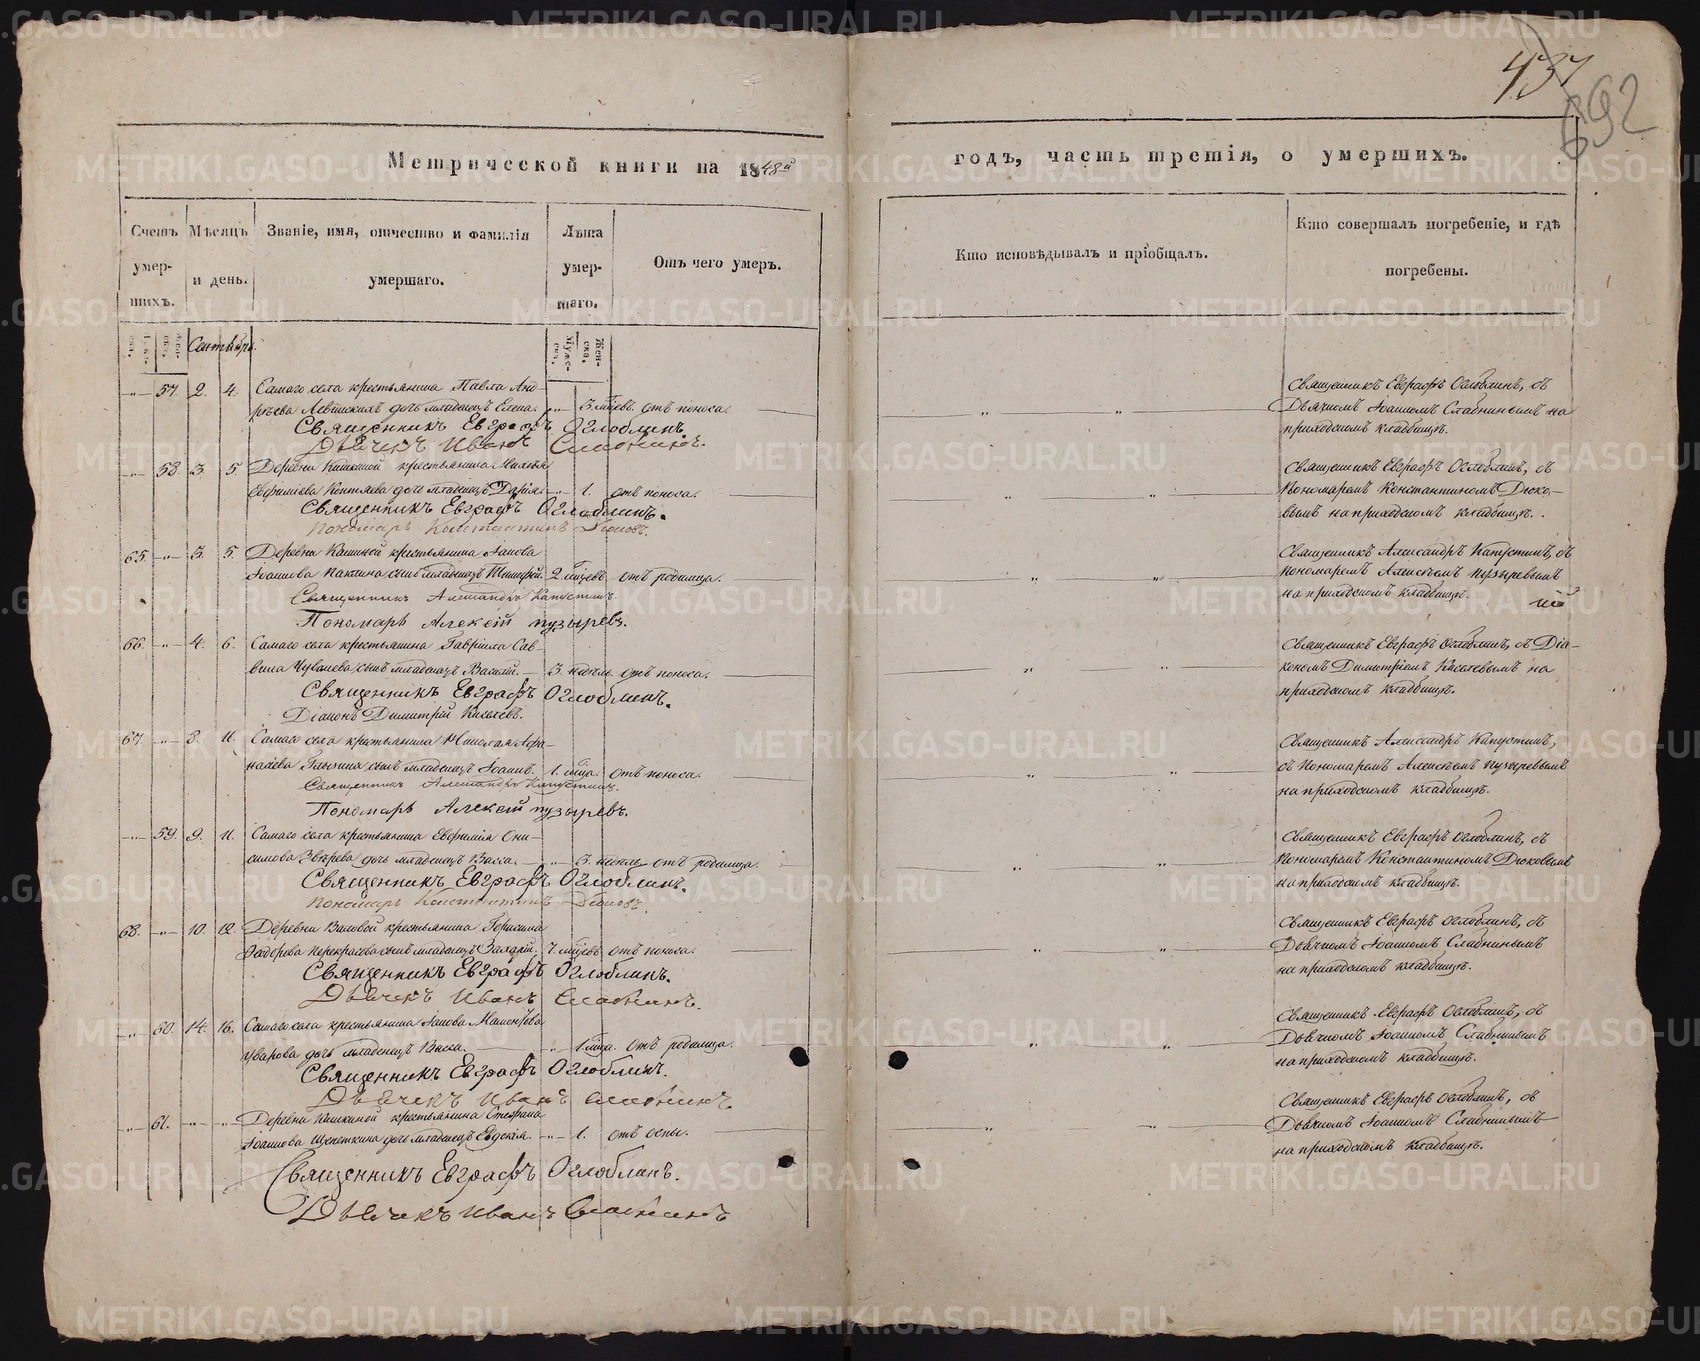 437
692
Метрической книги на 1848й
годъ, часть третія, о умершихъ.
Счетъ умер-шихъ.
Мѣсяцъ и день.
Званіе, имя, отчество и фамилія умершаго.
Лѣта умер-шаго.
Отъ чего умеръ.
Кто исповѣдывалъ и пріобщалъ.
Кто совершалъ погребеніе, и гдѣ погребены.
Муже-ска.
Жен-ска.
Сентябрь.
57. 2. 4. Самаго села крестьянина Павла Анд-
рѣева дочь младенецъ Елена. 3. мѣсев. отъ поноса.
Священникъ Евграфъ Оглоблинъ, съ
Дьячкомъ Іоанномъ Слабнинымъ на
приходскомъ кладбищѣ.
Священникъ Евграфъ Оглоблинъ.
Дьячекъ Иванъ
58. 3. 5 Деревни крестьянина
Евфиміева дочь младенецъ Дарія. 1. отъ поноса.
Священникъ Евграфъ Оглоблинъ, съ
Пономаремъ Константиномъ Дюко-
вымъ на приходскомъ кладбищѣ.
Священникъ Евграфъ Оглоблинъ.
Пономарь Константинъ Дюковъ.
65. 3. 5. Деревни крестьянина Іакова
Іоаннова сынъ младенецъ Тимофей. 2. мѣсевъ отъ родимца.
Священникъ Александръ Капустинъ, съ
Пономаремъ Алексѣемъ Пузыревымъ
на приходскомъ кладбищѣ.
Священникъ Александръ Капустинъ.
Пономарь Алексѣй Пузыревъ.
66. 4. 6. Самаго села крестьянина Гавріила Сав-
вина сынъ младенецъ Василій. 3. недѣль. отъ поноса.
Священникъ Евграфъ Оглоблинъ, съ Діа-
кономъ Димитріемъ Киселевымъ на
приходскомъ кладбищѣ.
Священникъ Евграфъ Оглоблинъ.
Діаконъ Димитрій Киселевъ.
67. 8. 11. Самаго села крестьянина Николая Афа-
насьева сынъ младенецъ Іоаннъ. 1. мѣца. отъ поноса.
Священникъ Александръ Капустинъ,
съ Пономаремъ Алексѣемъ Пузыревымъ
на приходскомъ кладбищѣ.
Священникъ Александръ Капустинъ.
Пономарь Алексѣй Пузыревъ.
59. 9. 11. Самаго села крестьянина Евфимія Они-
симова Звѣрева дочь младенецъ Васса. 3. недѣль отъ родимца.
Священникъ Евграфъ Оглоблинъ, съ
Пономаремъ Константиномъ Дюковымъ
на приходскомъ кладбищѣ.
Священникъ Евграфъ Оглоблинъ.
Пономарь Константинъ Дюковъ.
68. 10. 12. Деревни крестьянина Герасима
Ѳедорова сынъ младенецъ Захарій. 7. мѣсевъ отъ поноса.
Священникъ Евграфъ Оглоблинъ, съ
Дьячкомъ Іоанномъ Слабнинымъ
на приходскомъ кладбищѣ.
Священникъ Евграфъ Оглоблинъ.
Дьячекъ Иванъ
60. 14. 16. Самаго села крестьянина Іакова
Уварова дочь младенецъ Васса. 1 мѣца. отъ родимца.
Священникъ Евграфъ Оглоблинъ, съ
Дьячкомъ Іоанномъ Слабнинымъ
на приходскомъ кладбищѣ.
Священникъ Евграфъ Оглоблинъ.
Дьячекъ Иванъ
61. Деревни крестьянина Стефана
Іоаннова дочь младенецъ Евдокія. 1. отъ оспы.
Священникъ Евграфъ Оглоблинъ, съ
Дьячкомъ Іоанномъ Слабнинымъ
на приходскомъ кладбищѣ.
Священникъ Евграфъ Оглоблинъ.
Дьячекъ Иванъ
METRIKI.GASO-URAL.RU